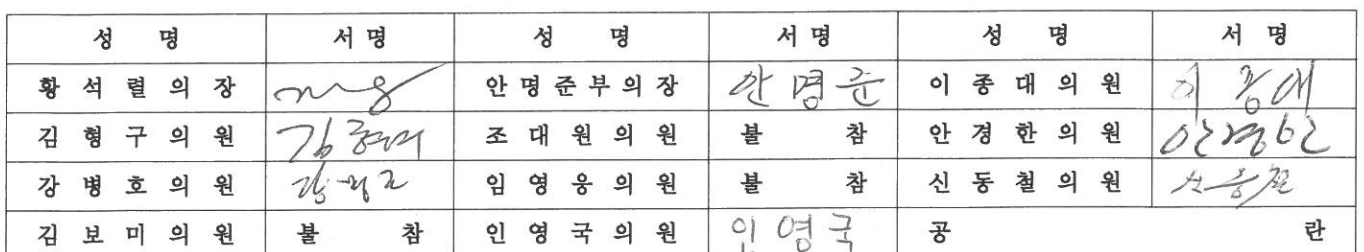 성 명 서 명 성 명 서 명 성 명 서 명
황 석 렬 의 장 안 명 준 부 의 장 안 명 준 이 종 대 의 원 이 종 대
김 형 구 의 원 김형구 조 대 원 의 원 불 참 안 경 한 의 원 안경한
강 병 호 의 원 임 영 웅 의 원 불 참 신 동 철 의 원
김 보 미 의 원 불 참 인 영 국 의 원 인 영 국 공 란